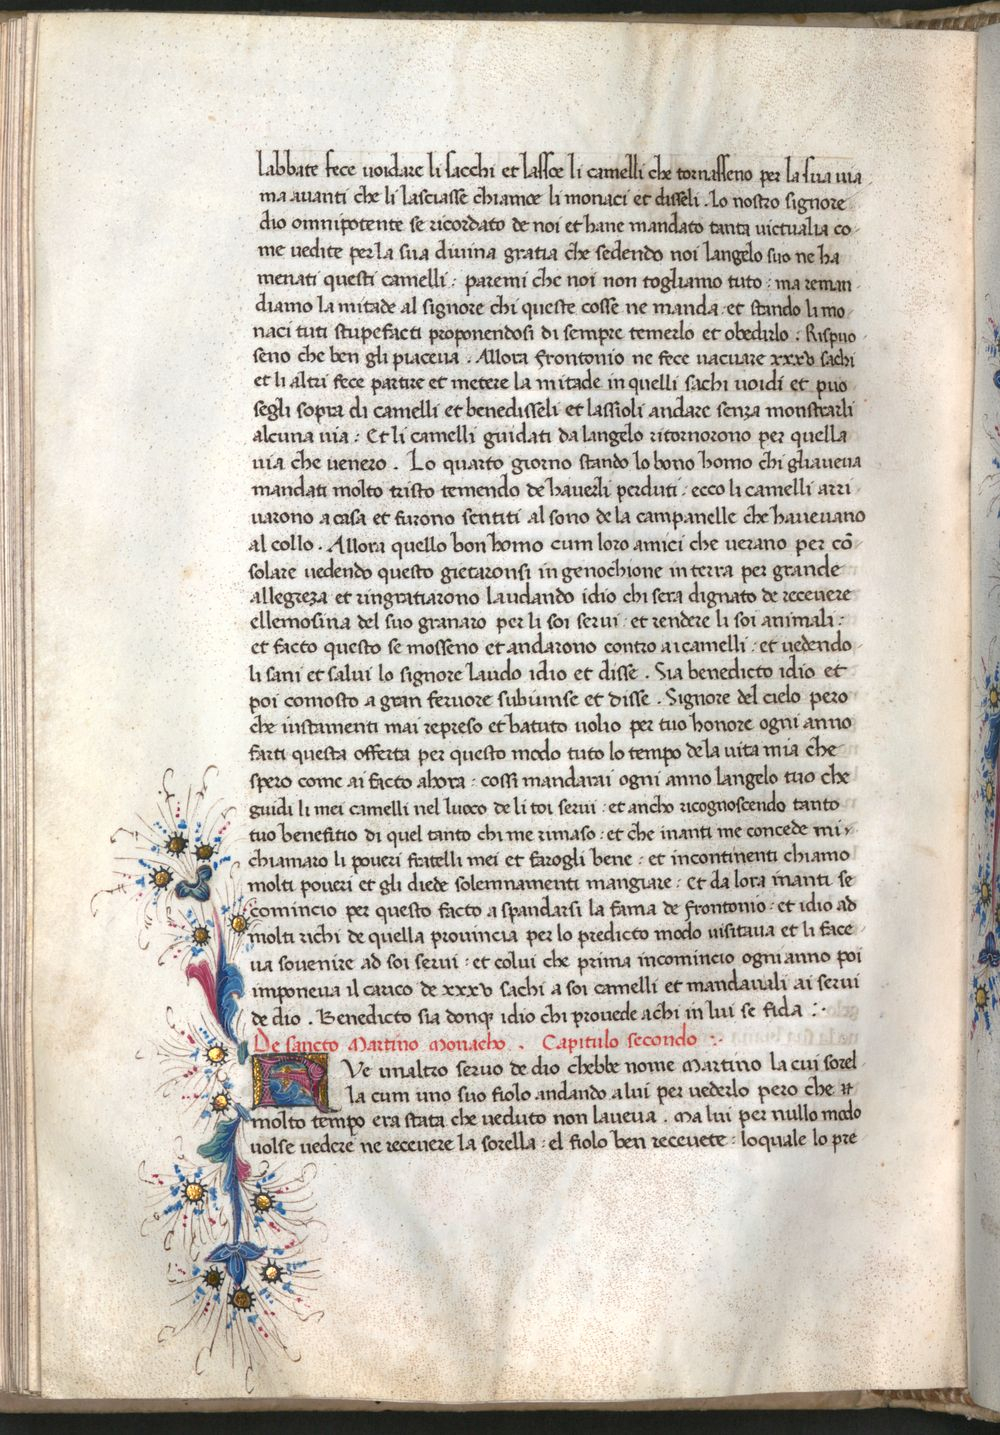 labbate fece uoidare li sacchi et lassoe li camelli che tornasseno per la sua uia
ma auanti che li lasciasse chiamoe li monaci et disseli . Lo nostro signore
dio omnipotente se ricordato de noi et hane mandato tanta uictualia co
me uedite per la sua diuina gratia che sedendo noi langelo suo ne ha
menati questi camelli : paremi che noi non togliamo tuto : ma reman
diamo la mitade al signore chi queste cosse ne manda : et stando li mo
naci tuti stupefacti proponendosi di sempre temerlo et obedirlo . Rispuo
seno che ben gli piaceua . Allora frontonio ne fece uacuare xxxv sachi
et li altri fece partire et metere la mitade in quelli sachi uoidi et puo
segli sopra di camelli et benedisseli et lassioli andare senza monstrarli
alcuna uia : Et li camelli guidati da langelo ritornorono per quella
uia che uenero . Lo quarto giorno stando lo bono homo chi gliaueua
mandati molto tristo temendo de hauerli perduti : ecco li camelli arri
uarono a casa et furono sentiti al sono de la campanelle che haueuano
al collo . Allora quello bon homo cum loro amici che uerano per cō
solare uedendo questo gietaronsi in genochione in terra per grande
allegreza et ringratiarono laudando idio chi sera dignato de receuere
ellemosina del suo granaro per li soi serui : et rendere li soi animali :
et facto questo se mosseno et andarono contro ai camelli : et uedendo
li sani et salui lo signore laudo idio et disse . Sia benedicto idio et
poi comosto a gran feruore subiunse et disse . Signore del cielo pero
che instamenti mai represo et batuto uolio per tuo honore ogni anno
farti questa offerta per questo modo tuto lo tempo de la uita mia che
spero come ai facto ahora : cossi mandarai ogni anno langelo tuo che
guidi li mei camelli nel luoco de li toi serui : et ancho ricognoscendo tanto
tuo benefitio di quel tanto chi me rimaso : et che inanti me concede mi
chiamaro li poueri fratelli mei et farogli bene : et incontinenti chiamo
molti poueri et gli diede solemnamenti mangiare : Et da lora inanti se
comincio per questo facto a spandarsi la fama de frontonio : et idio ad
molti richi de quella prouincia per lo predicto modo uisitaua et li face
ua souenire ad soi serui : et colui che prima incomincio ogni anno poi
imponeua il carico de xxxv sachi a soi camelli et mandauali ai serui
de dio . Benedicto sia donqʒ idio chi prouede a chi in lui se fida :·
De sancto Martino monacho . Capitulo secondo :·
Ve unaltro seruo de dio chebbe nome Martino la cui sorel
la cum uno suo fiolo andando a lui per uederlo pero che
molto tempo era stata che ueduto non laueua . Ma lui per nullo modo
uolse uedere ne receuere la sorella : el fiolo ben receuete : loquale lo pre